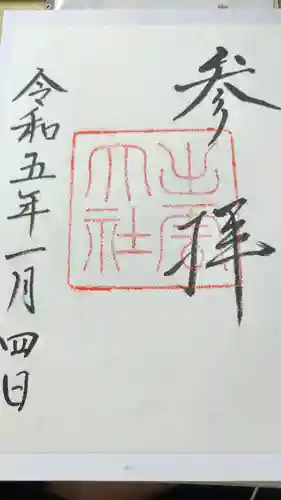 参拝
出雲大社
令和五年一月四日